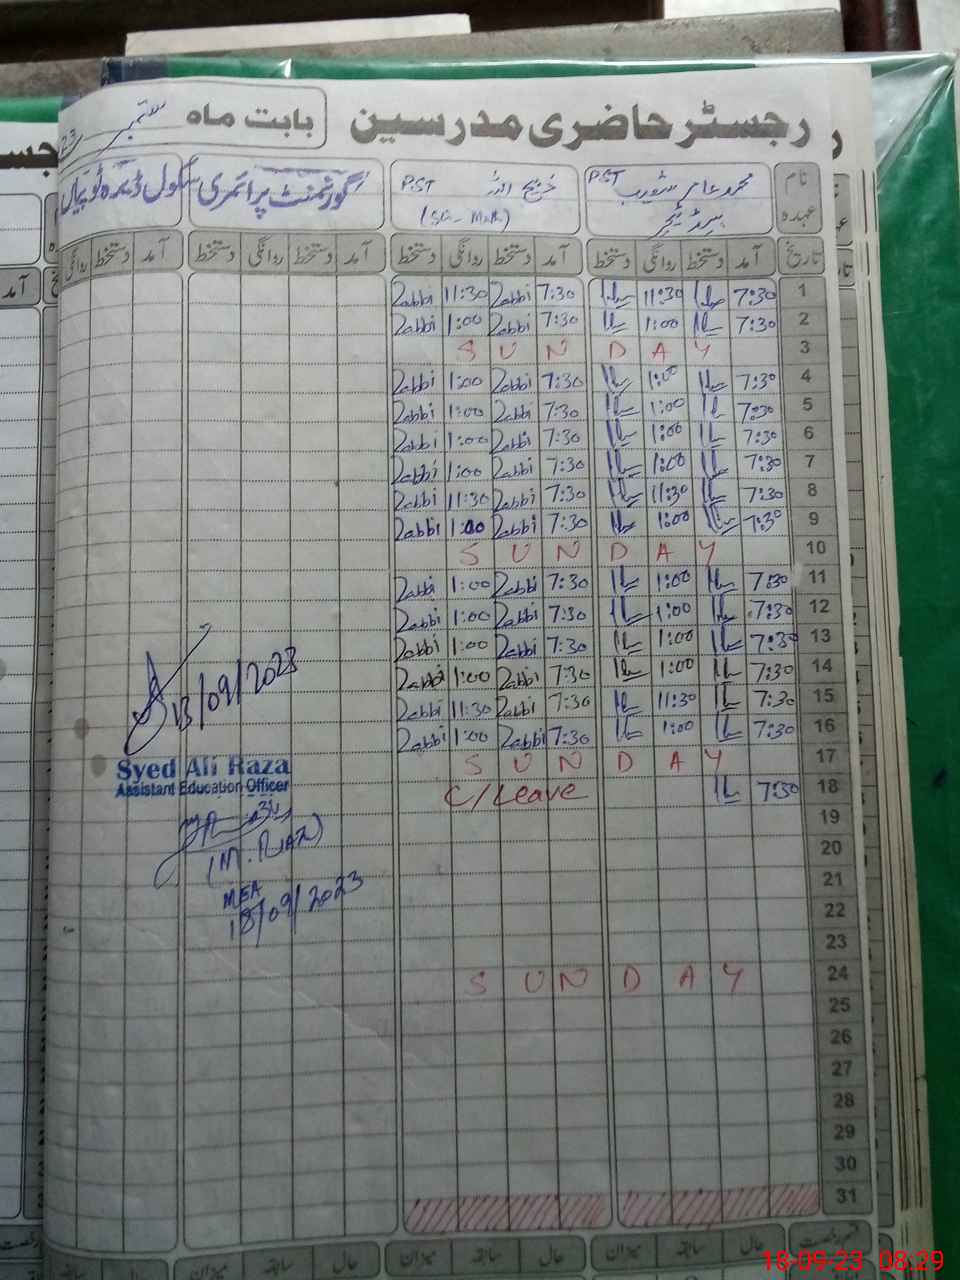 رجسٹر حاضری مدرسین
بابت ماہ ستمبر 23
نام
عہدہ
محمد عامر PST
ہیڈ ٹیچر
PST
گورنمنٹ پرائمری سکول
تاریخ آمد دستخط روانگی دستخط آمد دستخط روانگی دستخط آمد دستخط روانگی دستخط آمد دستخط روانگی
1 7:30 11:30 7:30 Zabbi 11:30 Zabbi
2 7:30 1:00 7:30 Zabbi 1:00 Zabbi
3 S U N D A Y
4 7:30 1:00 7:30 Zabbi 1:00 Zabbi
5 7:30 1:00 7:30 Zabbi 1:00 Zabbi
6 7:30 1:00 7:30 Zabbi 1:00 Zabbi
7 7:30 1:00 7:30 Zabbi 1:00 Zabbi
8 7:30 11:30 7:30 Zabbi 11:30 Zabbi
9 7:30 1:00 7:30 Zabbi 1:00 Zabbi
10 S U N D A Y
11 7:30 1:00 7:30 Zabbi 1:00 Zabbi
12 7:30 1:00 7:30 Zabbi 1:00 Zabbi
13 7:30 1:00 7:30 Zabbi 1:00 Zabbi
14 7:30 1:00 7:30 Zabbi 1:00 Zabbi
15 7:30 11:30 7:30 Zabbi 11:30 Zabbi
16 7:30 1:00 7:30 Zabbi 1:00 Zabbi
17 S U N D A Y
18 7:30 C/Leave
19
20
21
22
23
24 S U N D A Y
25
26
27
28
29
30
31
13/09/2023
Syed Ali Raza
Assistant Education Officer
(M. RIAZ)
MEA
18/09/2023
قسم رخصت حال سابقہ میزان حال سابقہ میزان حال سابقہ میزان
18-09-23 08:29